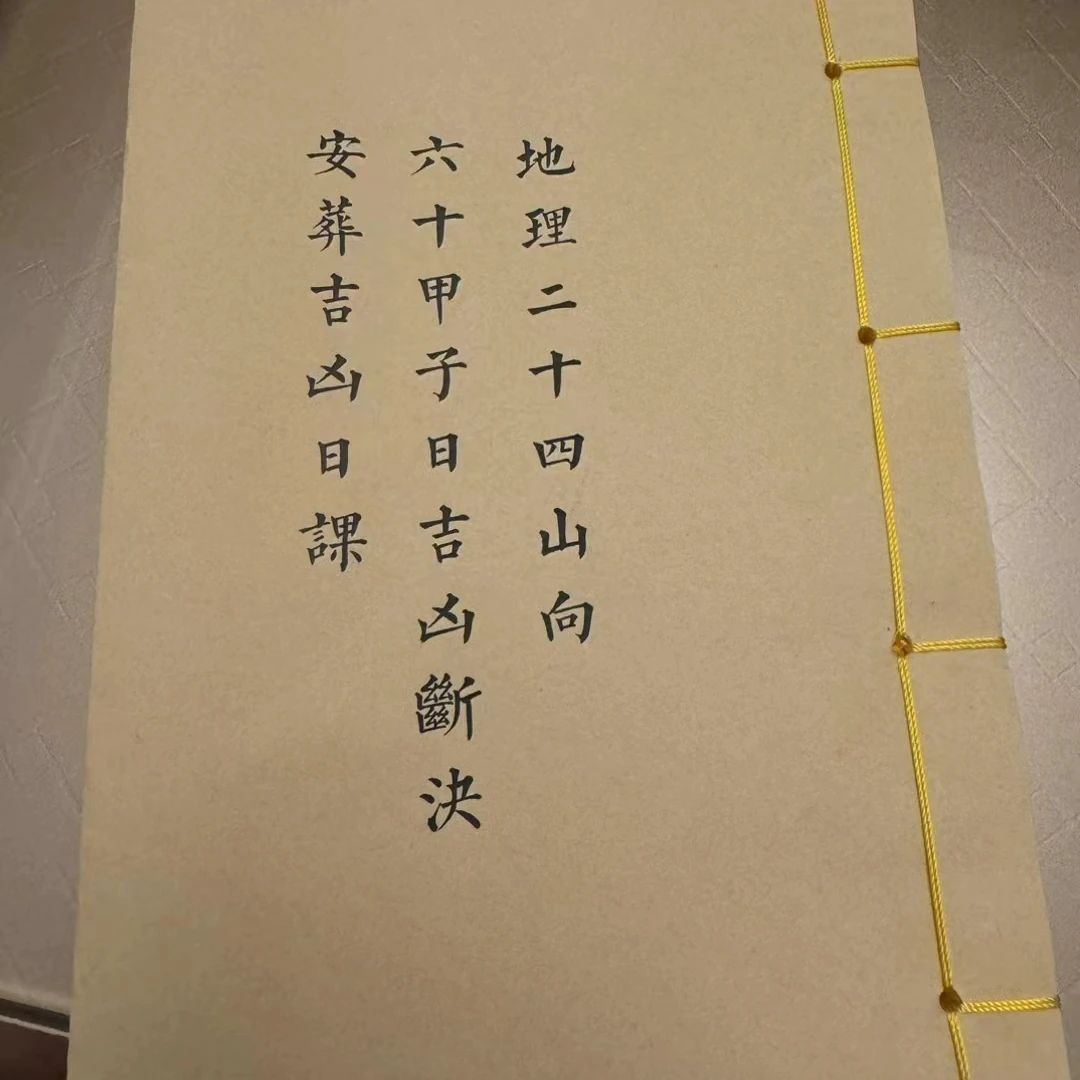 地理二十四山向
六十甲子日吉凶斷決
安葬吉凶日課